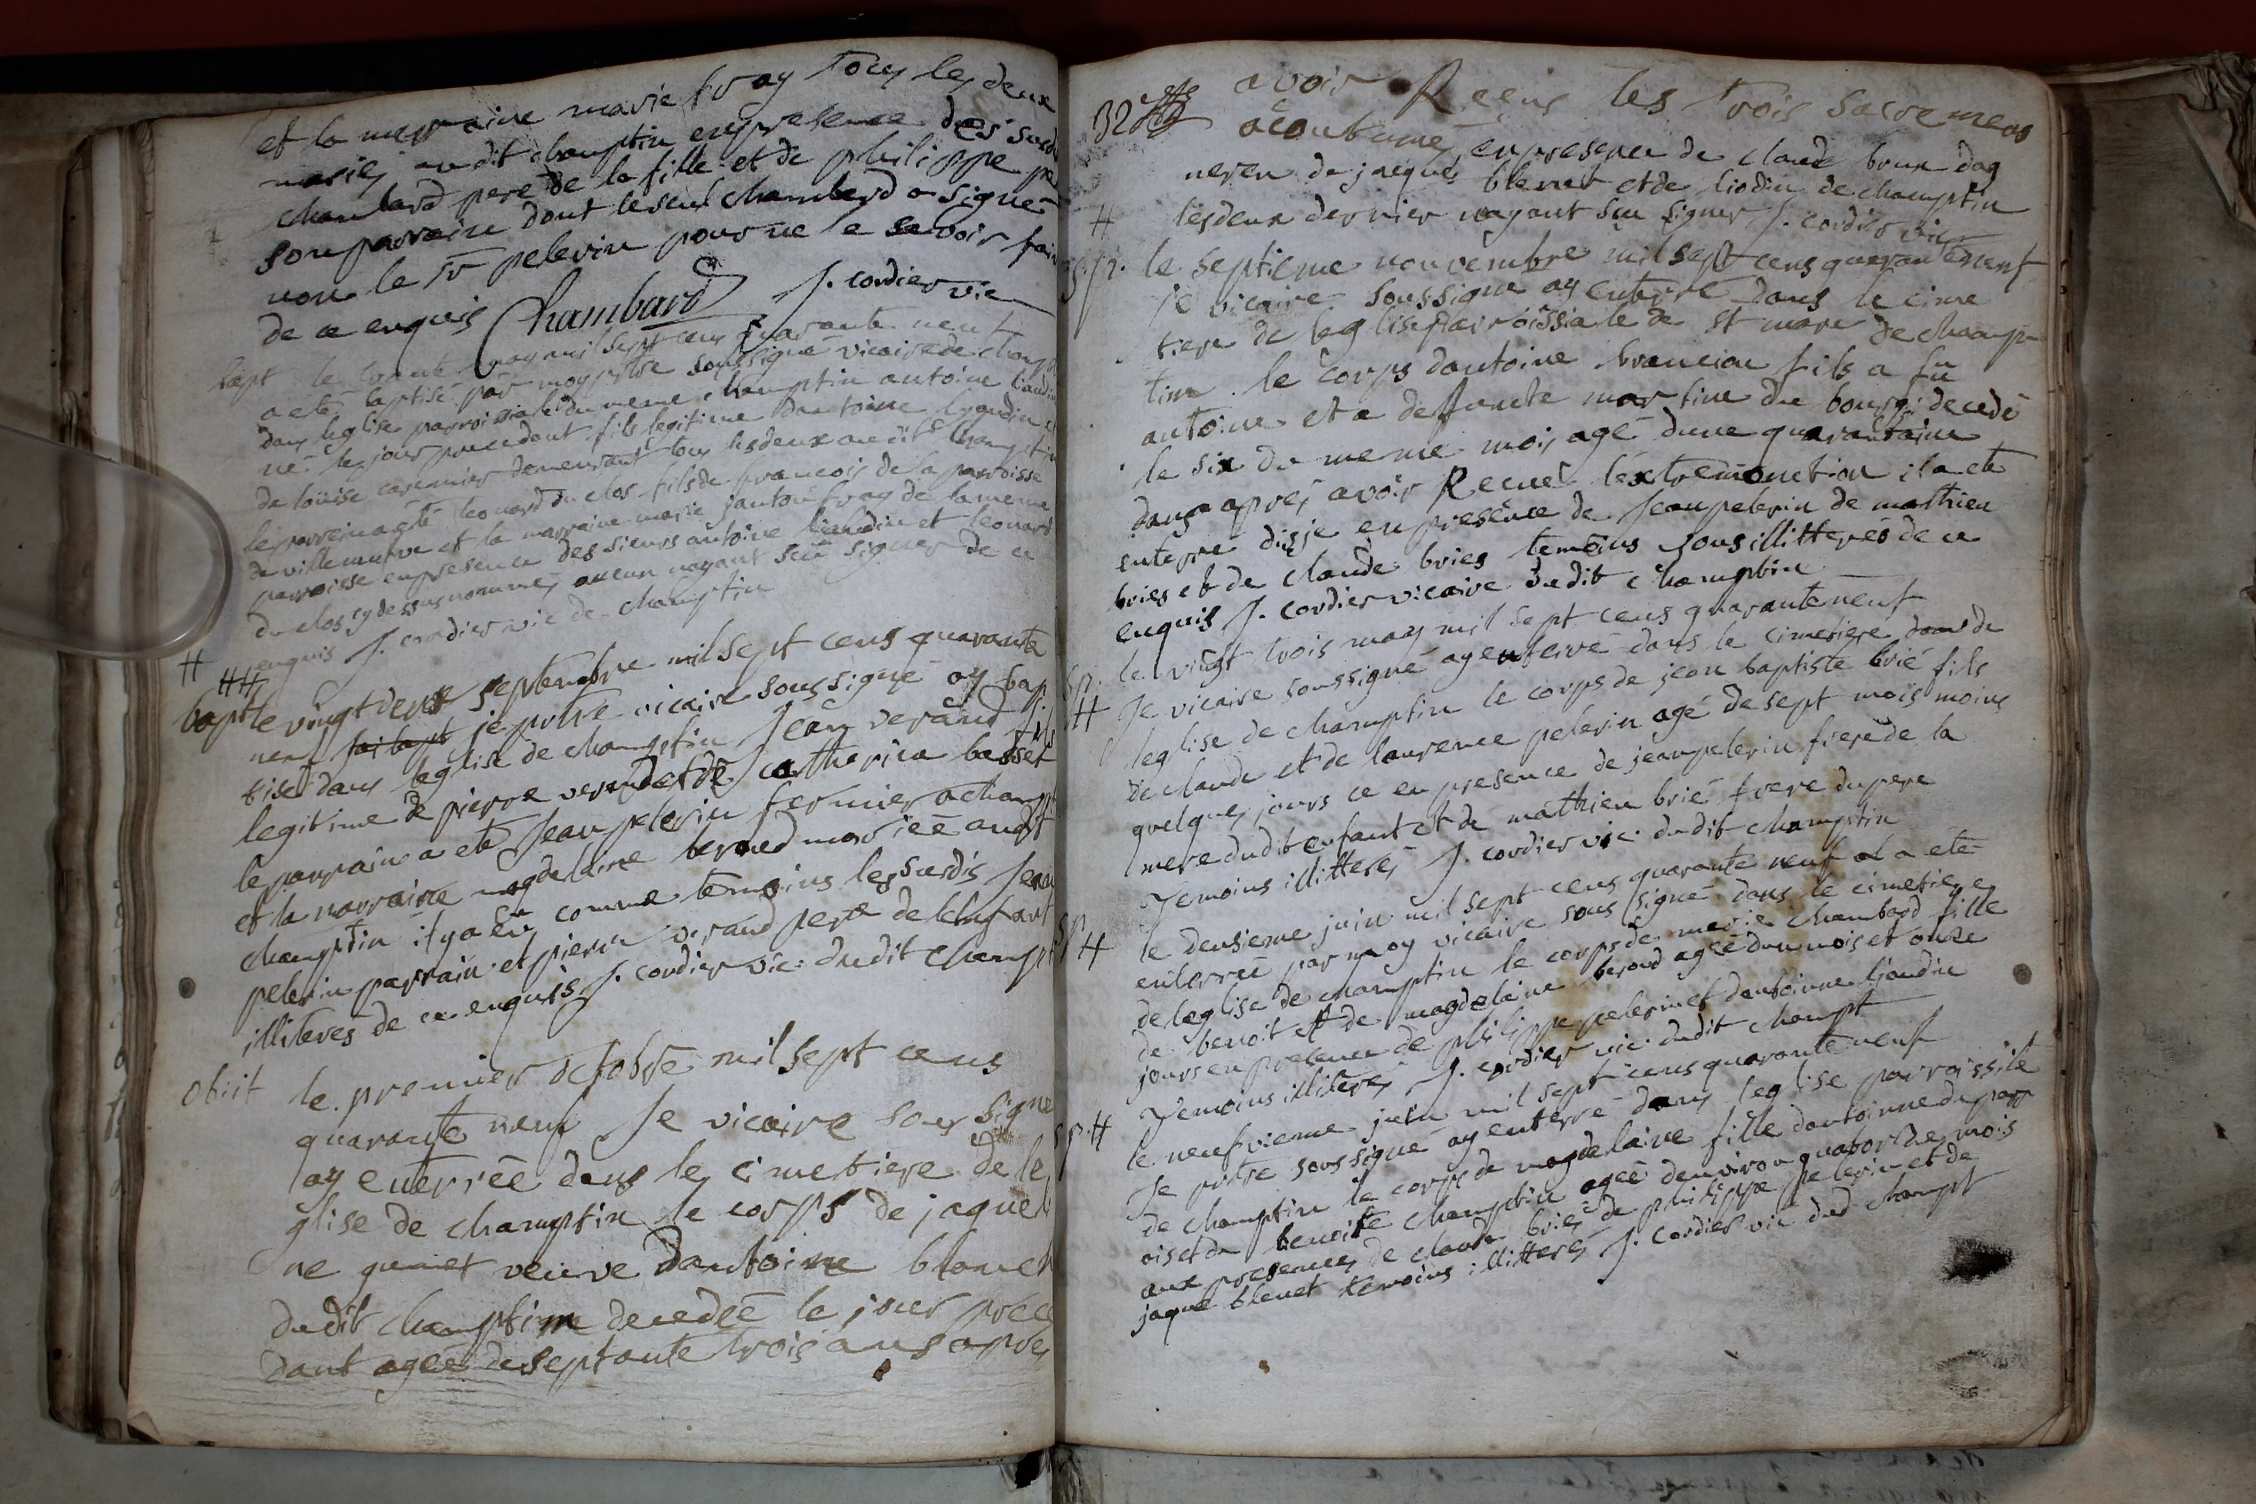 et la marraine marie fray Tous les deux
mariés audit champtin en presence des susdi
chambard pere de la fille et de philippe pe
son parrain dont le seul chambard a signé
non le Sr pelerin pour ne le scavoir fair
de ce enquis Chambard J. cordier vic
bapt le trente may mil sept cens quarante neuf
a eté baptisé par moy prtre soussigné vicaire de champ
dans leglise parroissiale du meme champtin antoine liaudin
né le jour precedant fils legitime dantoine lyaudin et
de louise demeurant tous les deux audit champtin
le parrein a eté leonard du clos fils de francois de la parroisse
de villeneufve et la marraine marie fray de la meme
parroisse en presence des sieurs antoine liaudin et leonard
du clos cy dessus nommés aucun nayant sceu signer de ce
enquis J. cordier vic de champtin
bapt le vingt deux septembre mil sept cens quarante
neuf je prtre vicaire soussigné ay bap
tisé dans leglise de champtin Jean verand fils
legitime de pierre verand et de catherine basset
le parrain a eté Jean pelerin fermier a champt
et la marraine magdelaine berand mariée audt
champtin il y a eu comme temoins les susdis Jean
pelerin parrain et pierre verand pere de lenfant
illiteres de ce enquis J. cordier vic. dudit champti
obiit le premier octobre mil sept cens
quarante neuf Je vicaire soussigné
ay enterreé dans le cimetiere de le
glise de champtin le corps de jaquel
ne veuve dantoine blanch
dudit champtin decedeé le jour prece
dant ageé de septante trois ans apres
32 avoir Reçus les trois sacremens
acoutumés en presence de claude brun dag
neren de jacques blenet et de liodin de champtin
les deux dernier nayant sceu signer J. cordier vic
sp. le septieme nouvembre mil sept cens quarante neuf
je vicaire soussigné ay enterré dans le cime
tiere de leglise pairoissiale de st mare de champ
tin le corps dantoine franciou fils a fu
antoine et a deffuncte martine du bourg decedé
le six du meme mois agé dune quarantaine
dans apres avoir Recuë lextremonction il a eté
enterre disje en presence de Jean pelerin de mathieu
bries et de claude bries temoins tous illitterés de ce
enquis J. cordier vicaire dudit champtin
sp. le vingt trois may mil sept cens quarante neuf
Je vicaire soussigné ay enterré dans le cimetiere de
leglise de champtin le corps de jean baptiste brié fils
de claude et de laurence pelerin agé de sept mois moins
quelques jours ce en presence de jean pelerin frere de la
mere dudit enfant et de mathieu brié frere du pere
Temoins illitterés J. cordier vic. dudit champtin
sp le deusieme juin mil sept cens quarante neuf a eté
enterreé par moy vicaire soussigné dans le cimetiere
de leglise de champtin le corps de marie chambard fille
de benoit et de magdelaine berand ageé dun mois et onze
jours en presence de philippe pelerin et dantoinne liaudin
Temoins illiterés J. cordier vic. dudit champt
sp. le neufvieme juin mil sept cens quarante neuf
Je prtre soussigné ay enterré dans leglise parroissile
de champtin le corps de magdelaine fille dantoinne
et de benoite champtin ageé denviron quatorze mois
aux presences de claude bries de philippe pelerin et de
jaque blenet temoins illitterés J. cordier vic dud champt